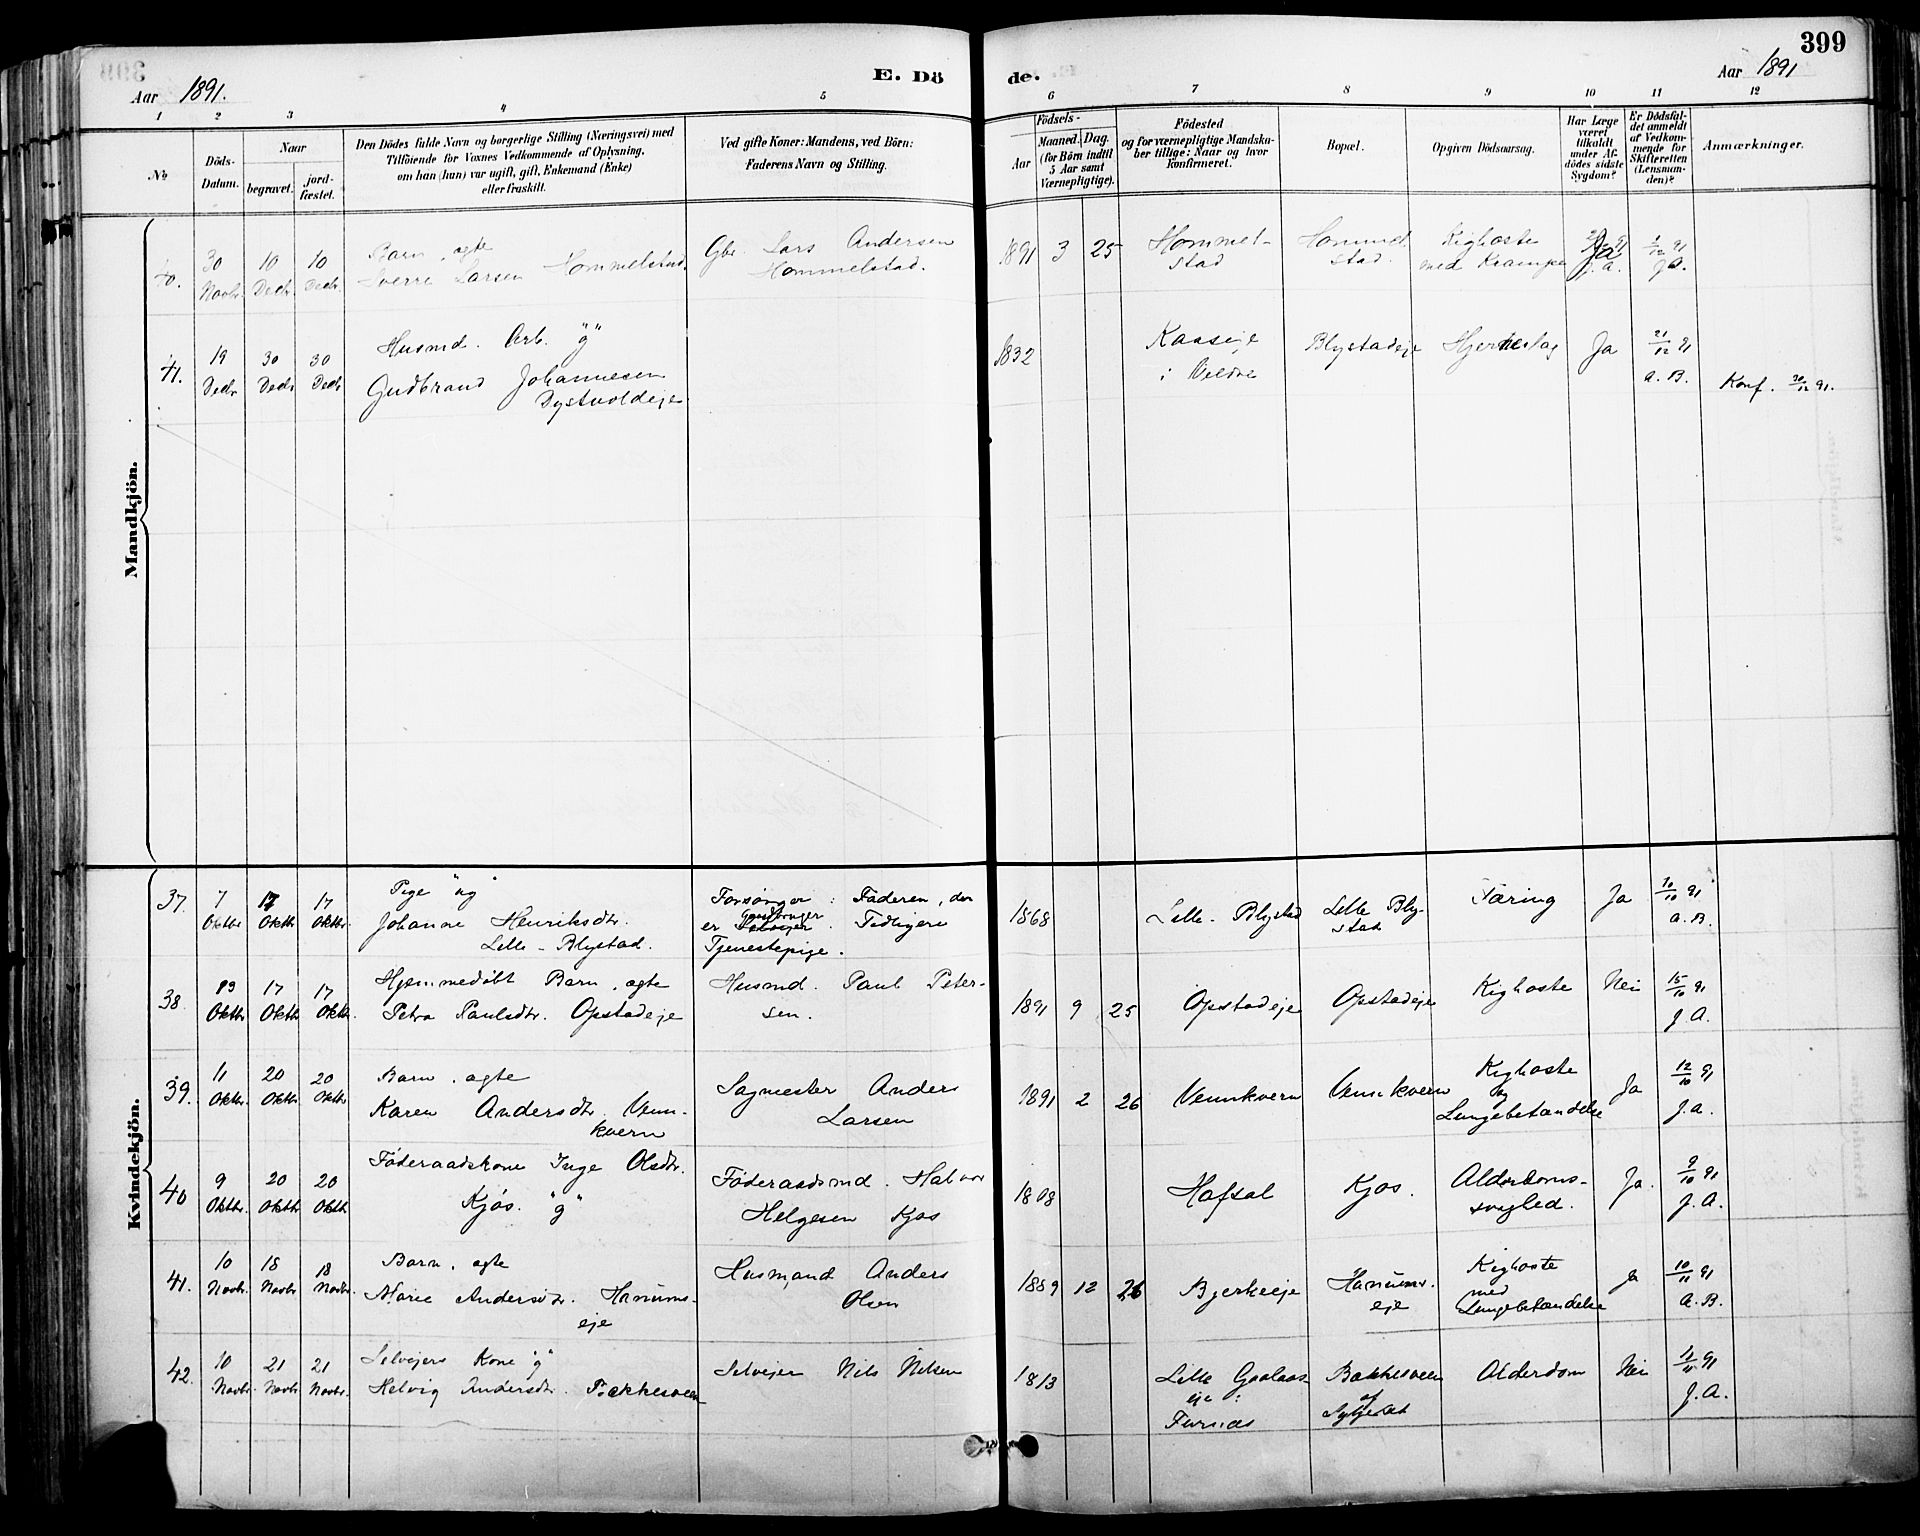 399
Aar 1891.
E. Dö
de.
Aar 1891
1 2 3 4 5 6 7 8 9 10 11 12
No
Döds-Datum.
Naar
begravet.
jord-fæstet.
Den Dödes fulde Navn og borgerlige Stilling (Næringsvei) med
Tilföiende for Voxnes Vedkommende af Oplysning,
om han (hun) var ugift, gift, Enkemand (Enke)
eller fraskilt.
Ved gifte Koner: Mandens, ved Börn:
Faderens Navn og Stilling.
Födsels-
Aar
Maaned. Dag.
(for Börn indtil
5 Aar samt
Værnepligtige).
Födested
og for værnepligtige Mandska-
ber tillige: Naar og hvor
konfirmeret.
Bopæl.
Opgiven Dödsaarsag.
Har Læge
været
tilkaldt
under Af-
dödes sidste
Sygdom?
Er Dödsfal-
det anmeldt
af Vedkom-
mende for
Skifteretten
(Lensman-
den)?
Anmærkninger.
Mandkjön.
40. 30 Novbr. 10 Decbr. 10 Decbr.
Barn, ægte
Sverre Larsen Hommelstad.
Gbr. Lars Andersen
Hommelstad.
1891 3 25
Hommel-
stad
Hommel-
stad.
Kighoste
med Krampe
Ja
1/12 91
J.A.
41. 19 Decbr 30 Decbr 30 Decbr
Husmd. Arb. "g"
Gudbrand Johannesen
Dystvoldeje
1832
Kaaseje
i Veldre
Blystadeje
Hjerteslag
Ja
21/12 91
A. B.
Konf. 30/12 91.
Kvindekjön.
37. 7 Oktbr 17 Oktbr 17 Oktbr.
Pige "ug"
Johanne Henriksdtr.
Lille-Blystad.
Forsørger: Faderen, der
er Gaardbruger. Tidligere
Tjenestepige.
1868
Lille-Blystad
Lille Bly-
stad
Tæring
Ja
10/10 91
A. B.
38. 13 Oktbr 17 Oktbr 17 Oktbr.
Hjemmedøbt Barn, ægte
Petra Paulsdtr. Opstadeje
Husmd. Paul Peter-
sen.
1891 9 25
Opstadeje
Opstadeje
Kighoste
Nei
15/10 91
J. A.
39. 11 Oktbr. 20 Oktbr 20 Oktbr
Barn, ægte
Karen Andersdtr. Venn-
kvern
Sagmester Anders
Larsen
1891 2 26
Vennkvern
Vennkvern
Kighoste
og
Lungebetændelse
Ja
12/10 91
J. A.
40 9 Oktbr. 20 Oktbr 20 Oktbr
Føderaadskone Inge Olsdtr.
Kjøs. "g"
Føderaadsmd. Halvor
Helgesen Kjøs
1808
Hafsal
Kjøs.
Alderdoms-
svaghed.
Ja.
9/10 91
J. A.
41. 10 Novbr 18 Novbr 18 Novbr.
Barn, ægte
Marie Andersdtr. Hanums-
eje
Husmand Anders
Olsen
1889 12 26
Bjerkeeje
Hanums-
eje
Kighoste
med
Lungebetændelse
Ja
10/11 91
A. B.
42. 10 Novbr. 21 Novbr 21 Novbr.
Selvejers Kone "g"
Helvig Andersdtr. Bakkesveen
Selvejer Nils Nilsen
1813
Lille Gaalaas
eje i
Furnes
Bakkesveen
af
Alderdom
Nei
11/11 91
J. A.